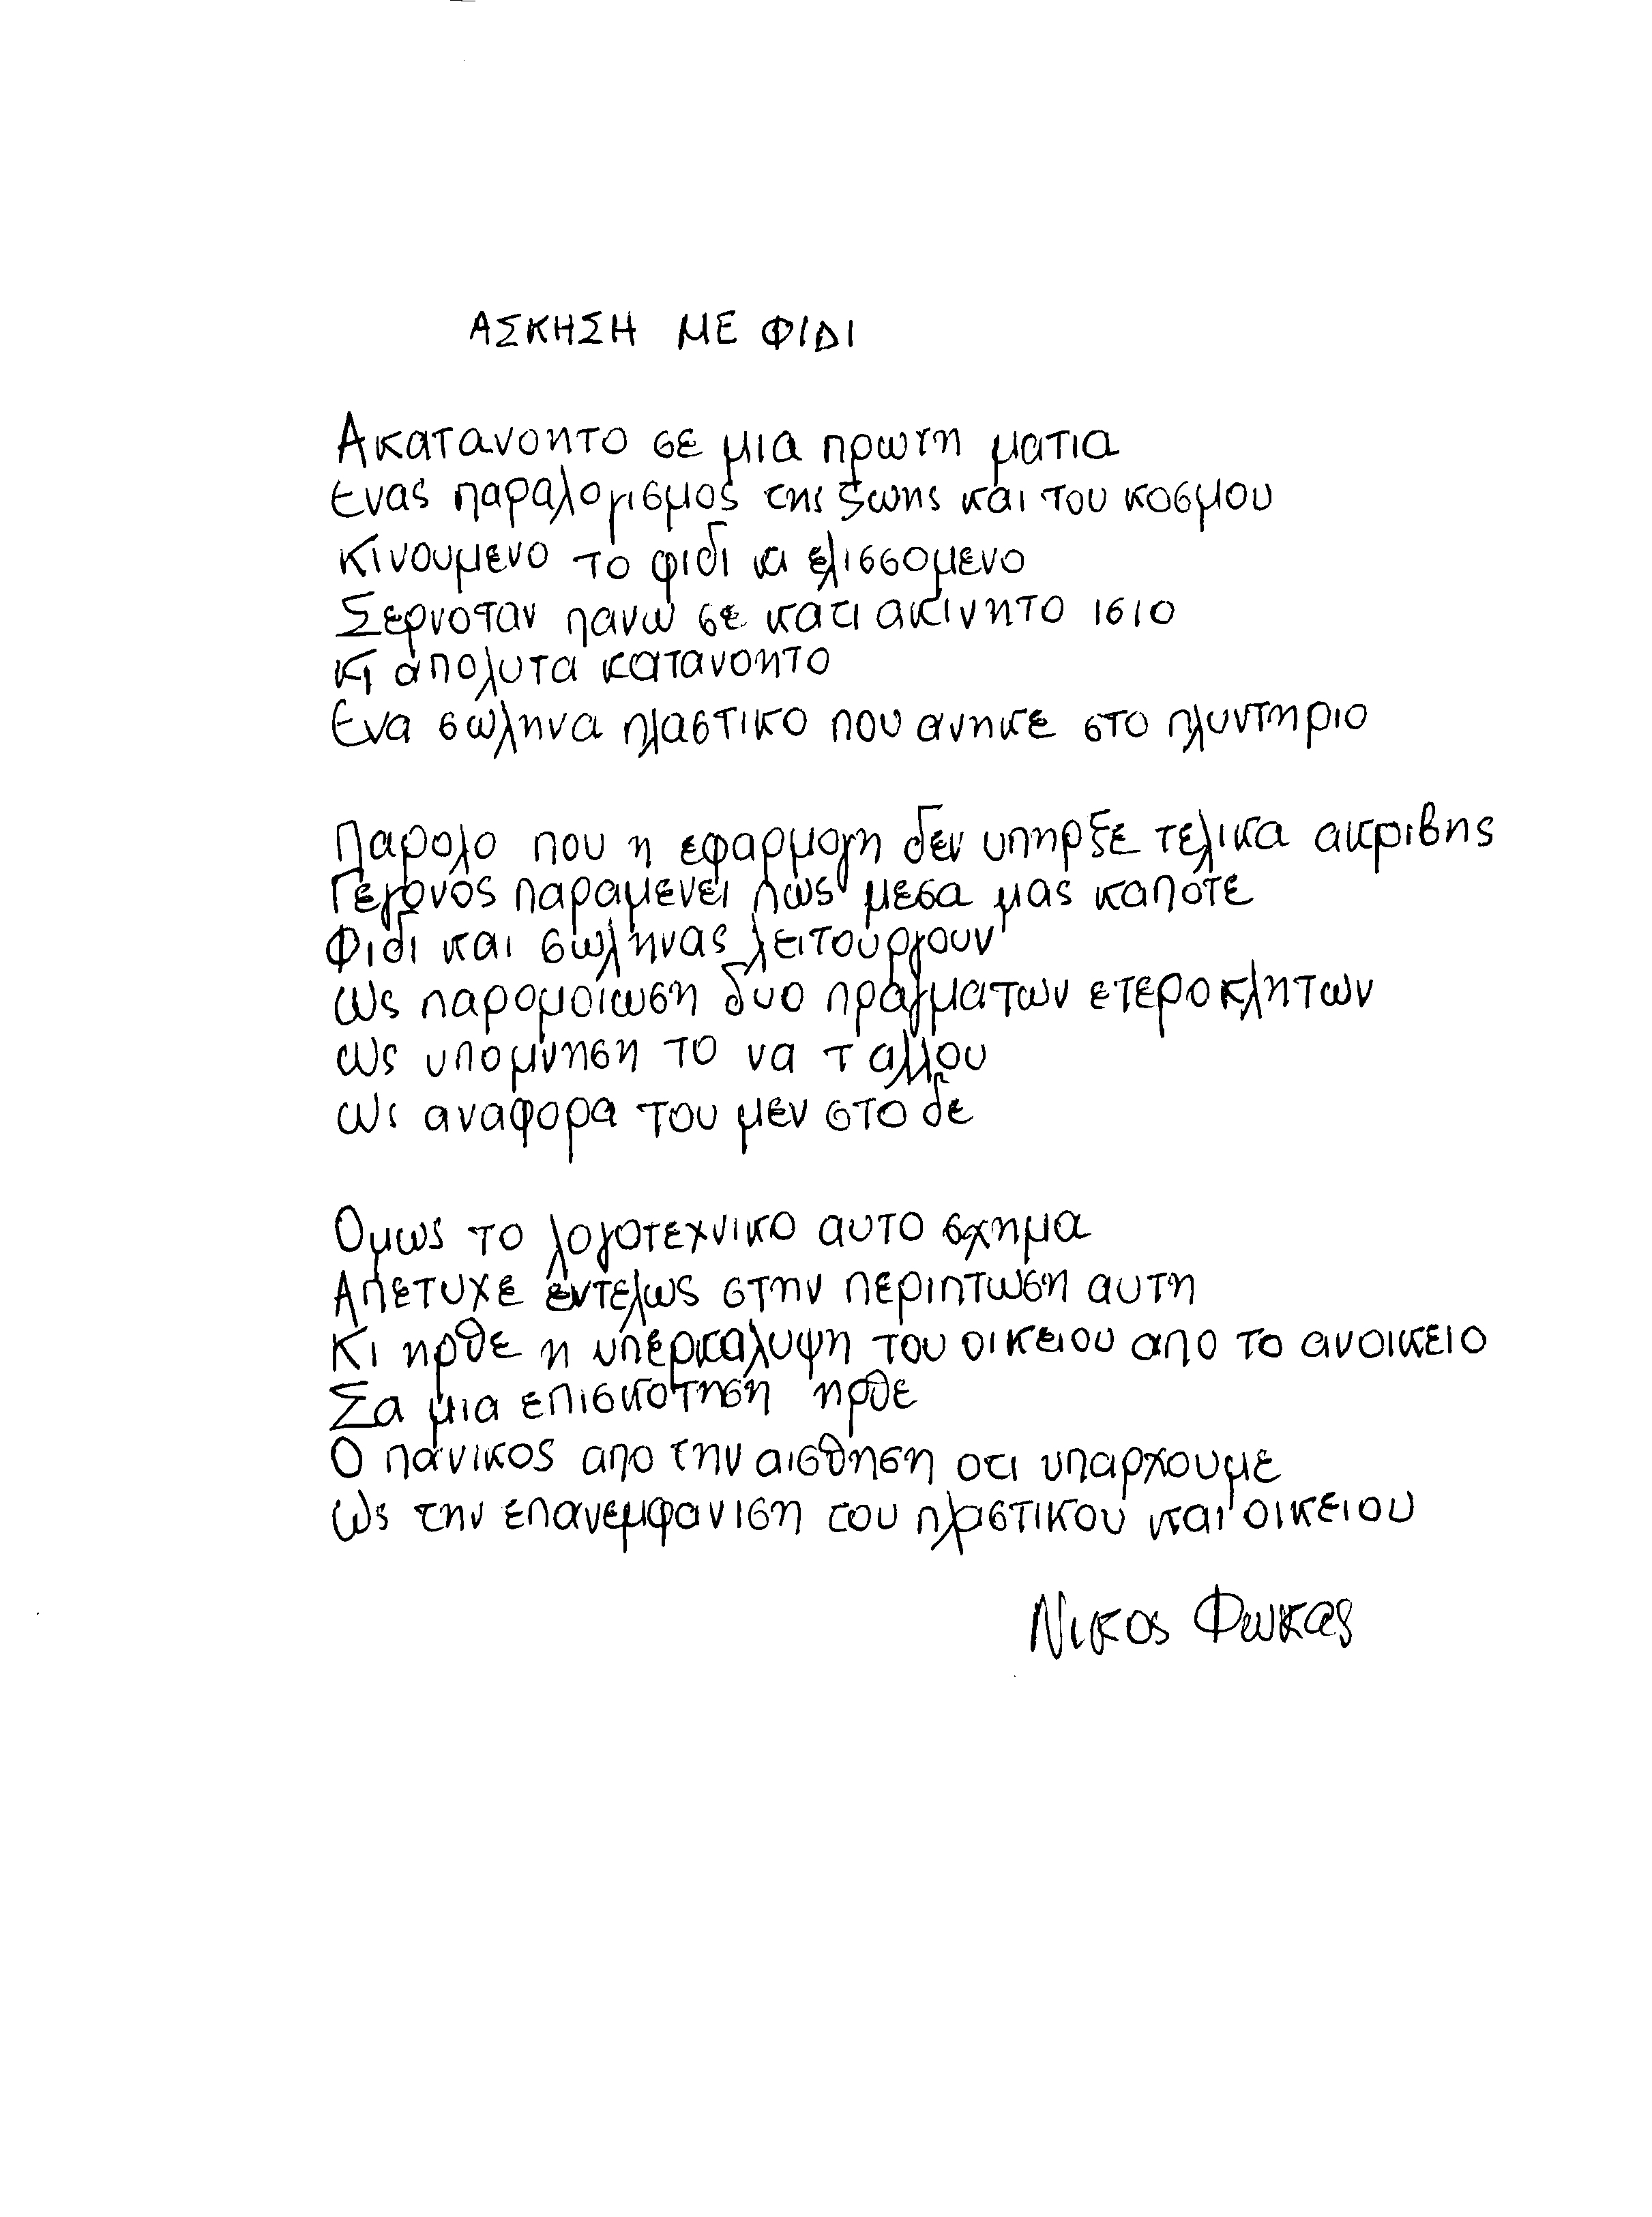 ΑΣΚΗΣΗ ΜΕ ΦΙΔΙ
Ακατανοητο σε μια πρωτη ματια
Ενας παραλογισμος της ζωης και του κοσμου
Κινουμενο το φιδι κι ελισσομενο
Σερνοταν πανω σε κατι ακινητο ισιο
Κι απολυτα κατανοητο
Ενα σωληνα πλαστικο που ανηκε στο πλυντηριο
Παρολο που η εφαρμογη δεν υπηρξε τελικα ακριβης
Γεγονος παραμενει πως μεσα μας καποτε
Φιδι και σωληνας λειτουργουν
Ως παρομοιωση δυο πραγματων ετεροκλητων
Ως υπομνηση το να τ αλλου
Ως αναφορα του μεν στο δε
Ομως το λογοτεχνικο αυτο σχημα
Απετυχε εντελως στην περιπτωση αυτη
Κι ηρθε η υπερκαλυψη του οικειου απο το ανοικειο
Σα μια επισκοτηση ηρθε
Ο πανικος απο την αισθηση οτι υπαρχουμε
Ως την επανεμφανιση του πλαστικου και οικειου
Νικος Φωκας